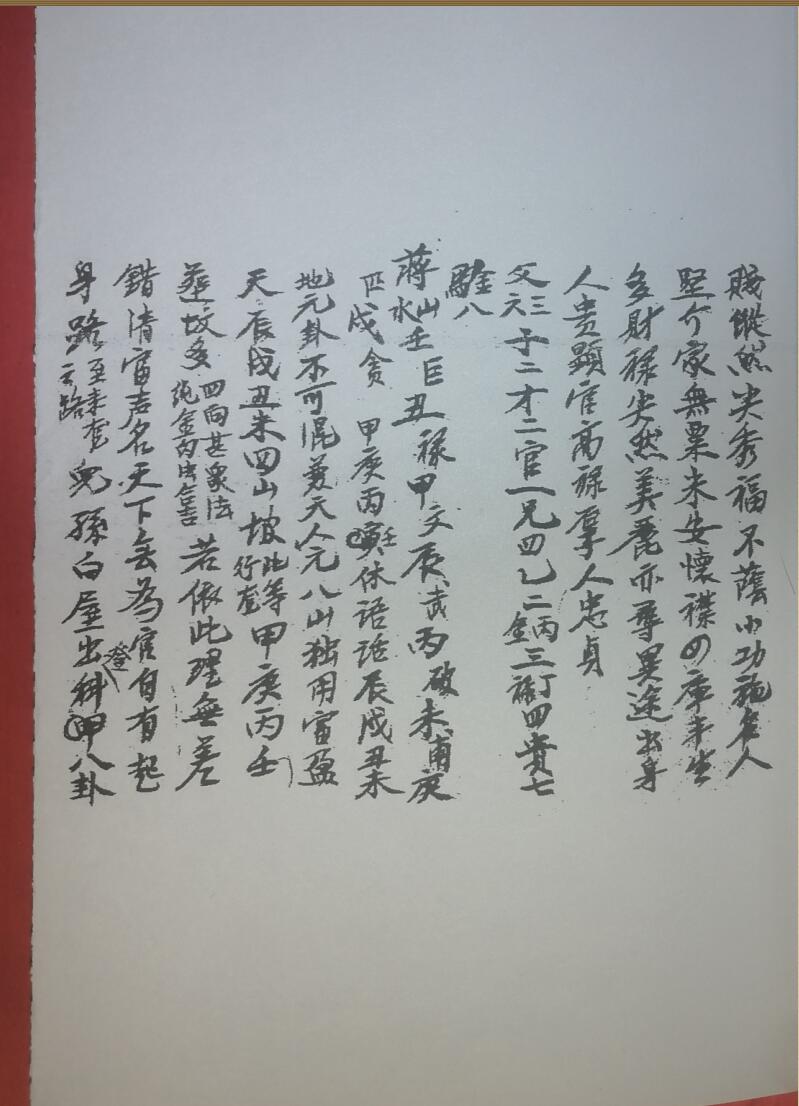 賤縱然尖秀福不蔭小功施名人
堅介家無粟米安懷襟四庫半坐
多財祿尖然美麗亦尋異途出身
人贵顕官高祿厚人忠貞
父天三子二才二官一兄四乙二丙金三祿丁四貴七
八
蔣山水壬巨丑祿甲文辰武丙破未甫庚
戌貪 甲庚丙壬休语话辰戌丑未
地元卦不可混羡天人元八山独用富盈
天辰戌丑未四山坡此等行龙甲庚丙壬
葬坟多四向甚象法 若依此理無差
錯清富声名天下去為官自有起
身路 至来 云路 兒孫白屋出登科甲八卦